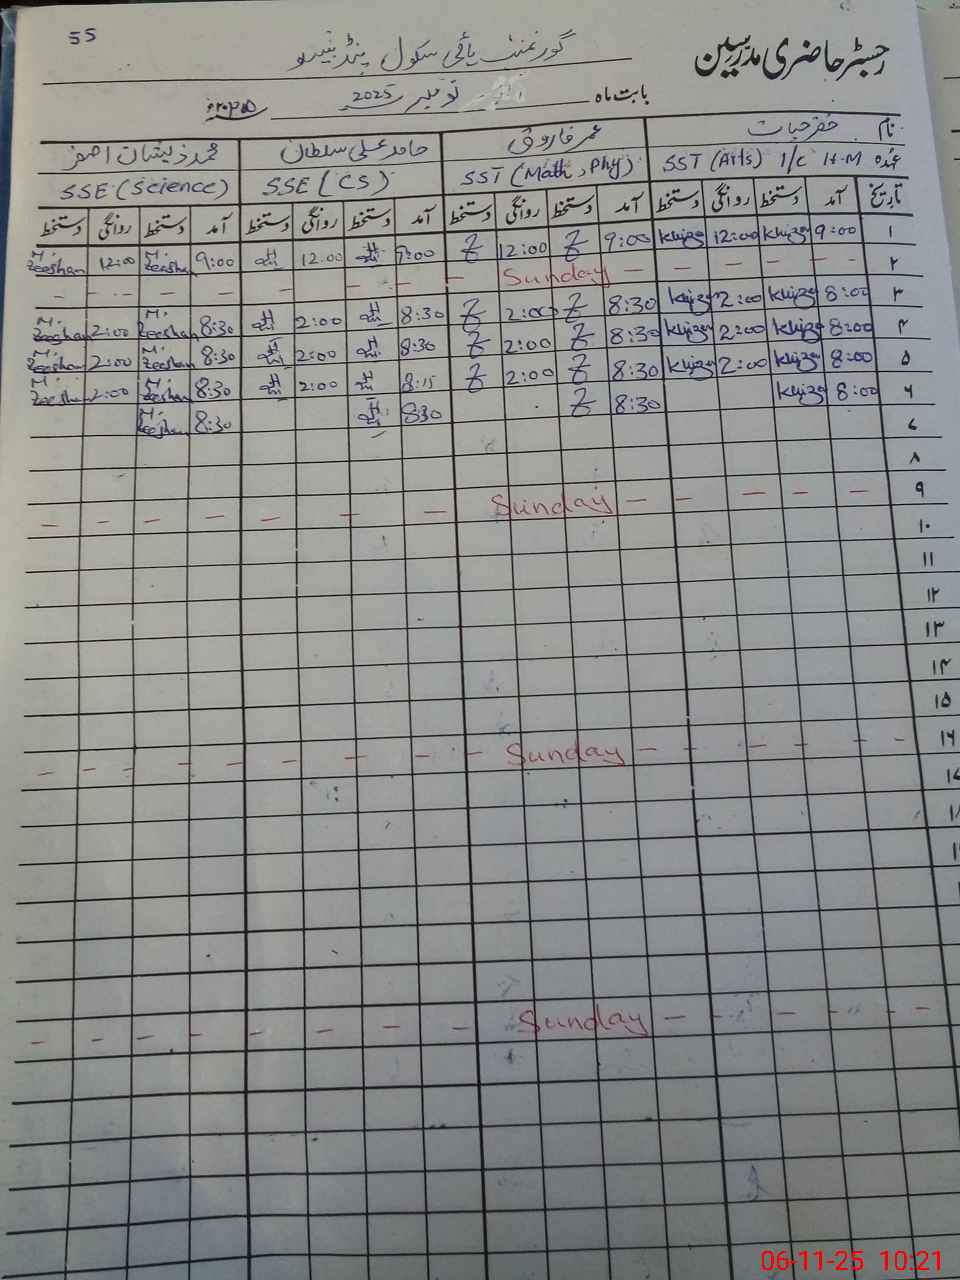 55
رجسٹر حاضری مدرسین
گورنمنٹ ہائی سکول پنڈ
بابت ماہ نومبر 2025
نام خضر حیات عمر فاروق حامد علی سلطان محمد ذیشان اصغر
عہدہ SST (Arts) I/C H.M SST (Math, Phy) SSE (CS) SSE (Science)
تاریخ آمد دستخط روانگی دستخط آمد دستخط روانگی دستخط آمد دستخط روانگی دستخط آمد دستخط روانگی دستخط
۱ 9:00 12:00 9:00 12:00 9:00 12:00 9:00 M. Zeeshan 12:00 M. Zeeshan
۲ - - - - - Sunday - - - - - - - -
۳ 8:00 2:00 8:30 2:00 8:30 2:00 8:30 M. Zeeshan 2:00 M. Zeeshan
۴ 8:00 2:00 8:30 2:00 8:30 2:00 8:30 M. Zeeshan 2:00 M. Zeeshan
۵ 8:00 2:00 8:30 2:00 8:15 2:00 8:30 M. Zeeshan 2:00 M. Zeeshan
۶ 8:00 8:30 8:30 8:30 M. Zeeshan
۷
۸
۹ - - - - - Sunday - - - - - - -
۱۰
۱۱
۱۲
۱۳
۱۴
۱۵
۱۶ - - - - - Sunday - - - - - - - - -
۱۷
۱۸
- - - - - - Sunday - - - - - - - -
06-11-25 10:21